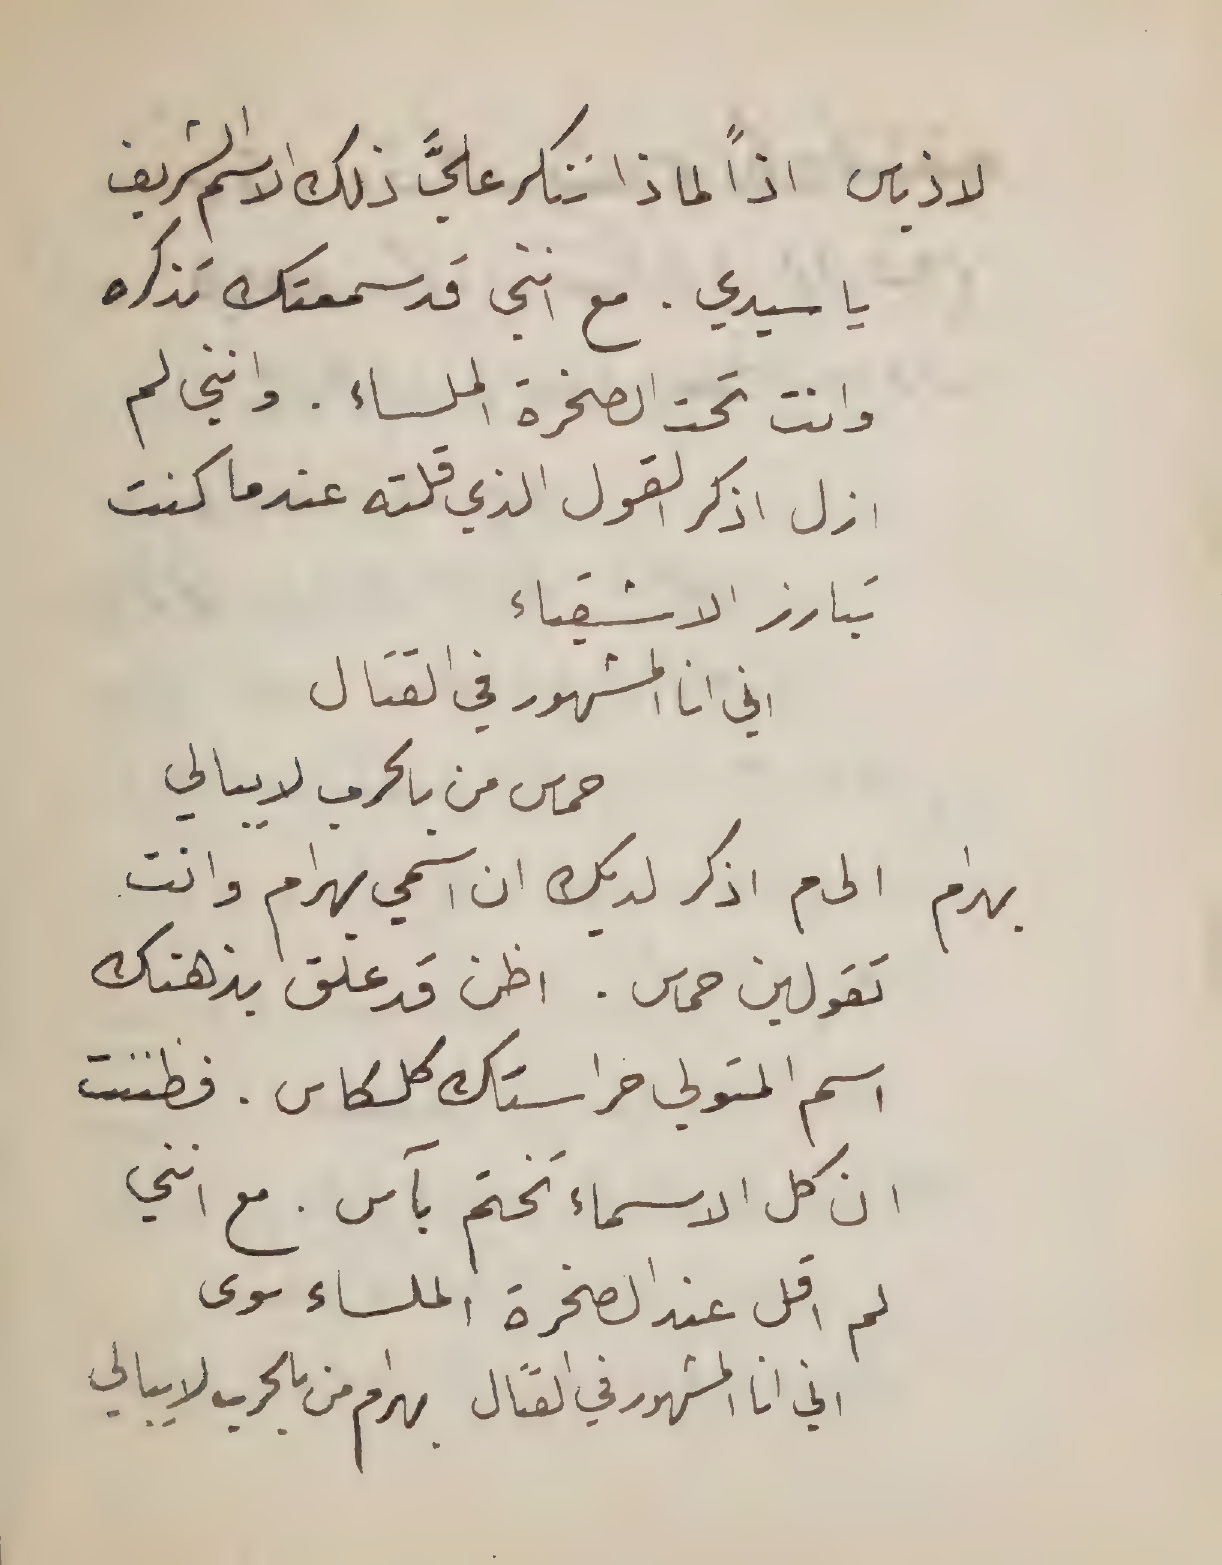 لاذياس اذاً لماذا تنكر عليَّ ذلك الاسم الشريف
يا سيدي . مع انني قد سمعتك تذكره
وانت تحت الصخرة الملساء . وانني لم
ازل اذكر القول الذي قلته عندما كنت
تبارز الاشقياء
اني انا المشهور في القتال
حماس من بالحرب لا يبالي
بهرام الى م اذكر لديك ان اسمي بهرام وانت
تقولين حماس . اظن قد علق بذهنك
اسم المتولي حراستك كلكاس . فظننت
ان كل الاسماء تختم بآس . مع انني
لم اقل عند الصخرة الملساء سوى
اني انا المشهور في القتال بهرام من بالحرب لا يبالي